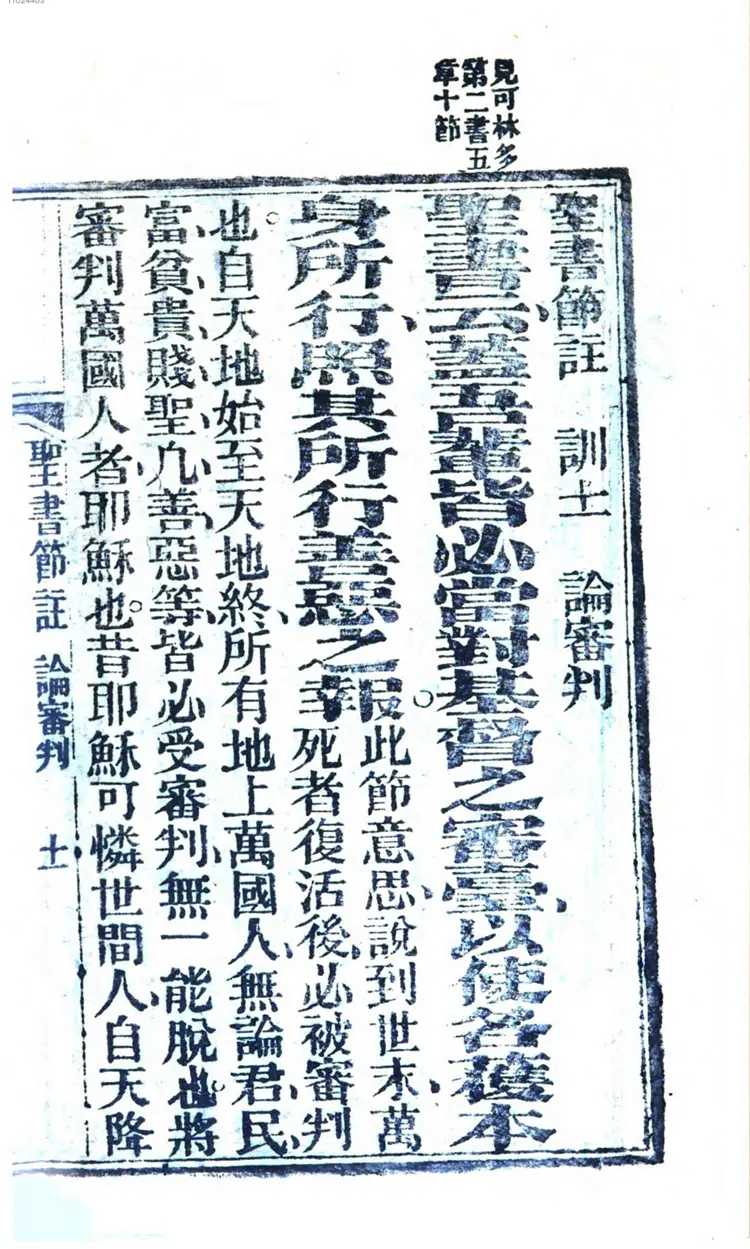 11024463
見可林多
第二書五
章十節
聖書節註 訓十一 論審判
聖書云、蓋吾輩皆必當對基督之審臺、以使各穫本
身所行、照其所行善惡之報。此節意思、說到世末、萬
死者復活後、必被審判
也。自天地始至天地終、所有地上萬國人、無論君、民、
富、貧、貴、賤、聖、凡、善、惡等、皆必受審判、無一能脫也。將
審判萬國人者、耶穌也。昔耶穌可憐世間人、自天降
聖書節註 論審判 十一